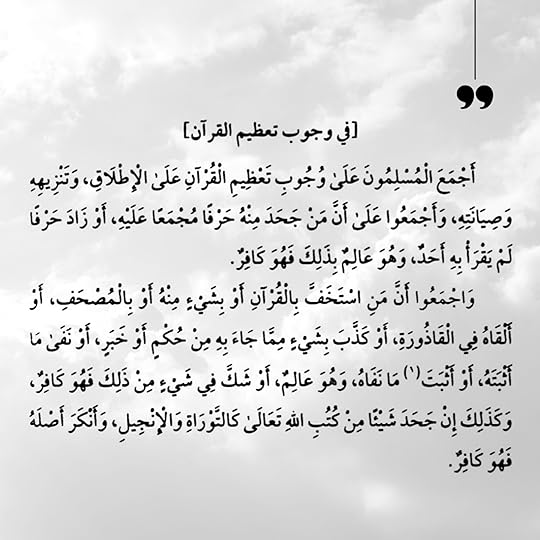 [في وجوب تعظيم القرآن]
أَجْمَعَ الْمُسْلِمُونَ عَلَىٰ وُجُوبِ تَعْظِيمِ الْقُرْآنِ عَلَىٰ الْإِطْلَاقِ، وَتَنْزِيهِهِ
وَصِيَانَتِهِ، وَأَجْمَعُوا عَلَىٰ أَنَّ مَنْ جَحَدَ مِنْهُ حَرْفًا مُجْمَعًا عَلَيْهِ، أَوْ زَادَ حَرْفًا
لَمْ يَقْرَأْ بِهِ أَحَدٌ، وَهُوَ عَالِمٌ بِذَلِكَ فَهُوَ كَافِرٌ.
وَاجْمَعُوا أَنَّ مَنِ اسْتَخَفَّ بِالْقُرْآنِ أَوْ بِشَيْءٍ مِنْهُ أَوْ بِالْمُصْحَفِ، أَوْ
أَلْقَاهُ فِي الْقَاذُورَةِ، أَوْ كَذَّبَ بِشَيْءٍ مِمَّا جَاءَ بِهِ مِنْ حُكْمٍ أَوْ خَبَرٍ، أَوْ نَفَىٰ مَا
أَثْبَتَهُ، أَوْ أَثْبَتَ(١) مَا نَفَاهُ، وَهُوَ عَالِمٌ، أَوْ شَكَّ فِي شَيْءٍ مِنْ ذَلِكَ فَهُوَ كَافِرٌ،
وَكَذَلِكَ إِنْ جَحَدَ شَيْئًا مِنْ كُتُبِ اللهِ تَعَالَىٰ كَالتَّوْرَاةِ وَالْإِنْجِيلِ، وَأَنْكَرَ أَصْلَهُ
فَهُوَ كَافِرٌ.